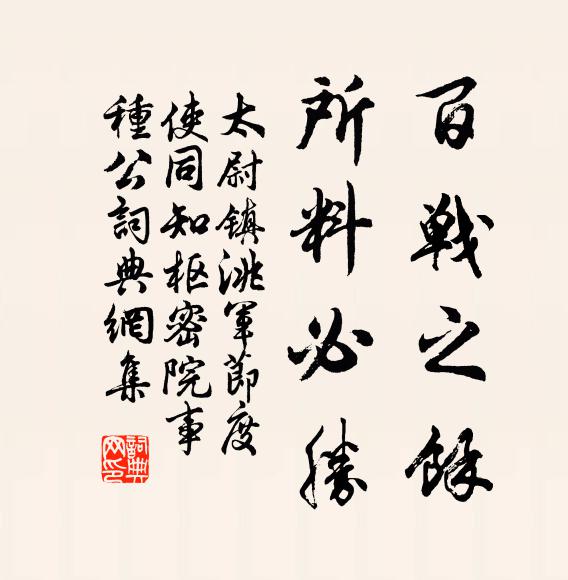 百戰之餘
所料必勝
太尉镇洮軍節度
使同知枢密院事
種公詞典網集
詞典
网印